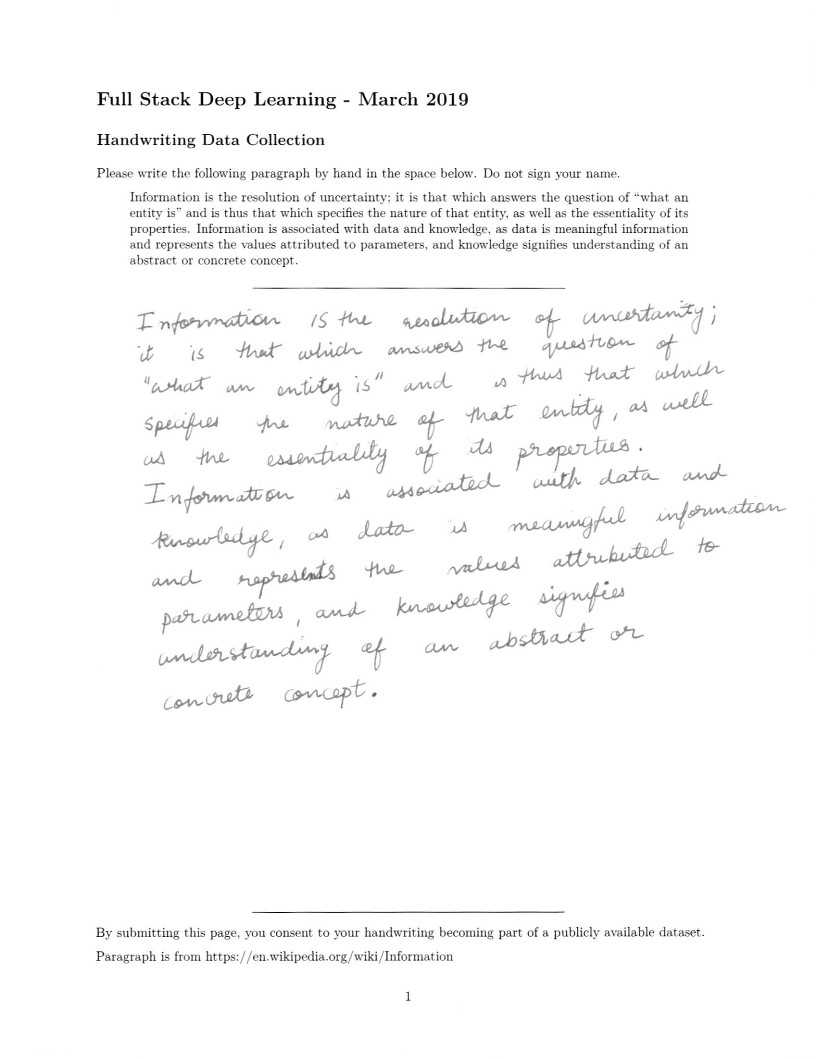 Full Stack Deep Learning - March 2019
Handwriting Data Collection
Please write the following paragraph by hand in the space below. Do not sign your name.
Information is the resolution of uncertainty; it is that which answers the question of “what an
entity is” and is thus that which specifies the nature of that entity, as well as the essentiality of its
properties. Information is associated with data and knowledge, as data is meaningful information
and represents the values attributed to parameters, and knowledge signifies understanding of an
abstract or concrete concept.
Information is the resolution of uncertanity;
it is that which answers the question of
"what an entity is" and is thus that which
specifies the nature of that entity, as well
as the essentiality of its properties.
Information is associated with data and
knowledge, as data is meaningful information
and represents the values attributed to
parameters, and knowledge signifies
understanding of an abstract or
concrete concept.
By submitting this page, you consent to your handwriting becoming part of a publicly available dataset.
Paragraph is from https://en.wikipedia.org/wiki/Information
1